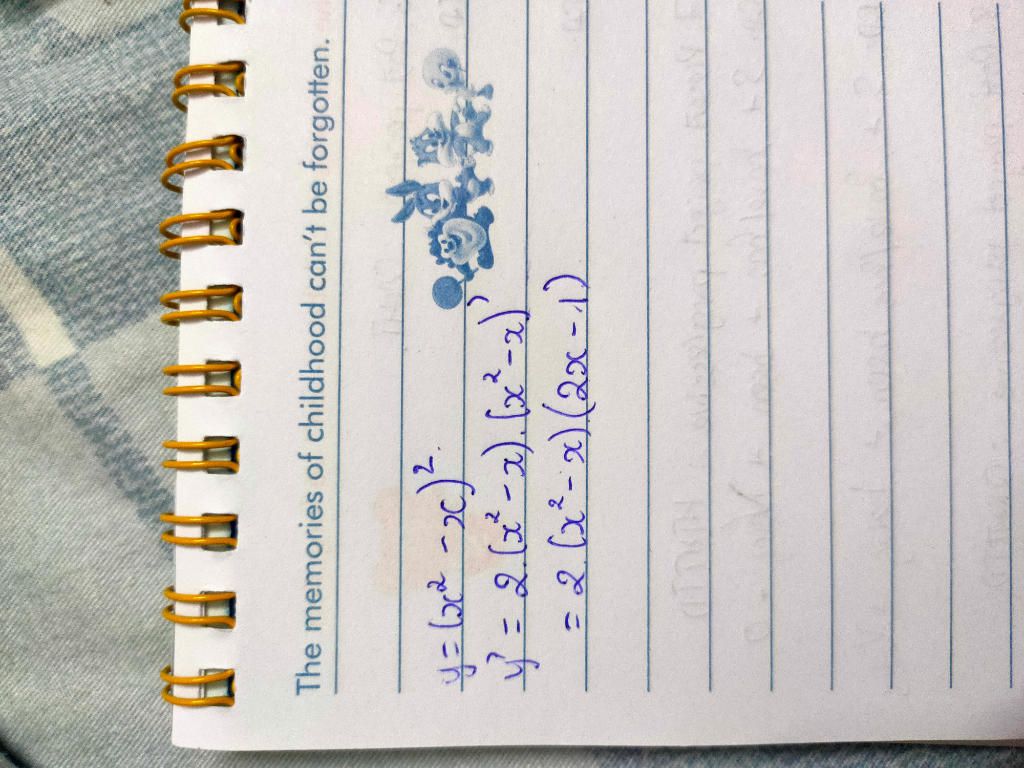 The memories of childhood can't be forgotten.
y = (x² - x)².
y' = 2.(x² - x).(x² - x)'
= 2.(x² - x)(2x - 1)